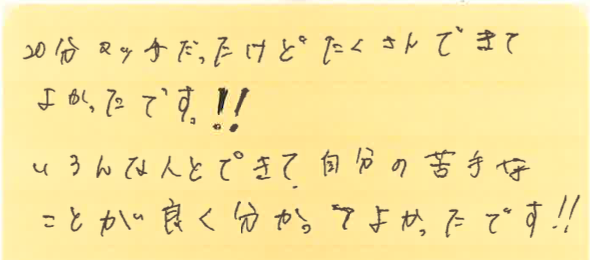 20分マッチだったけどたくさんできて
よかったです。!!
いろんな人とできて、自分の苦手な
ことが良く分かってよかったです!!